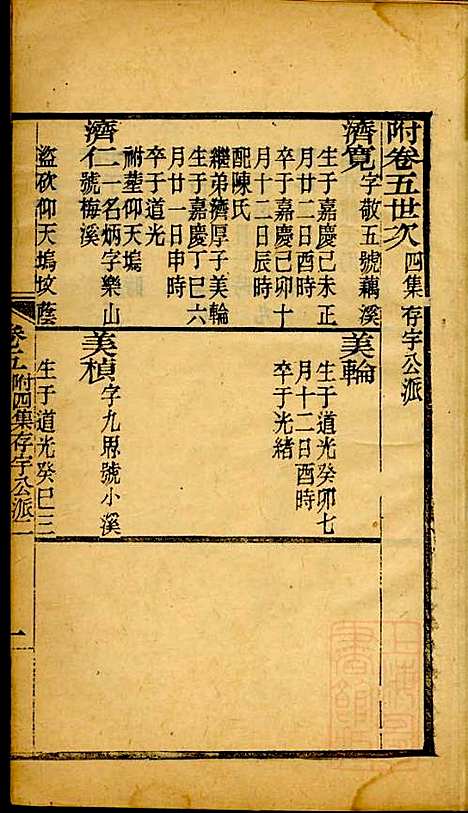 附卷五世次 四集存字公派
濟寬 字敬五號藕溪
生于嘉慶己未正
月廿二日酉時
卒于嘉慶己卯十
月十二日辰時
配陳氏
繼弟濟厚子美輪
生于嘉慶丁巳六
月廿一日申時
卒于道光
祔塟仰天塢
濟仁 一名炳字樂山
號梅溪
盜砍仰天塢坟蔭
美輪
生于道光癸卯七
月十二日酉時
卒于光緒
美楨 字九恩號小溪
生于道光癸巳三
卷五附四集存字公派
一